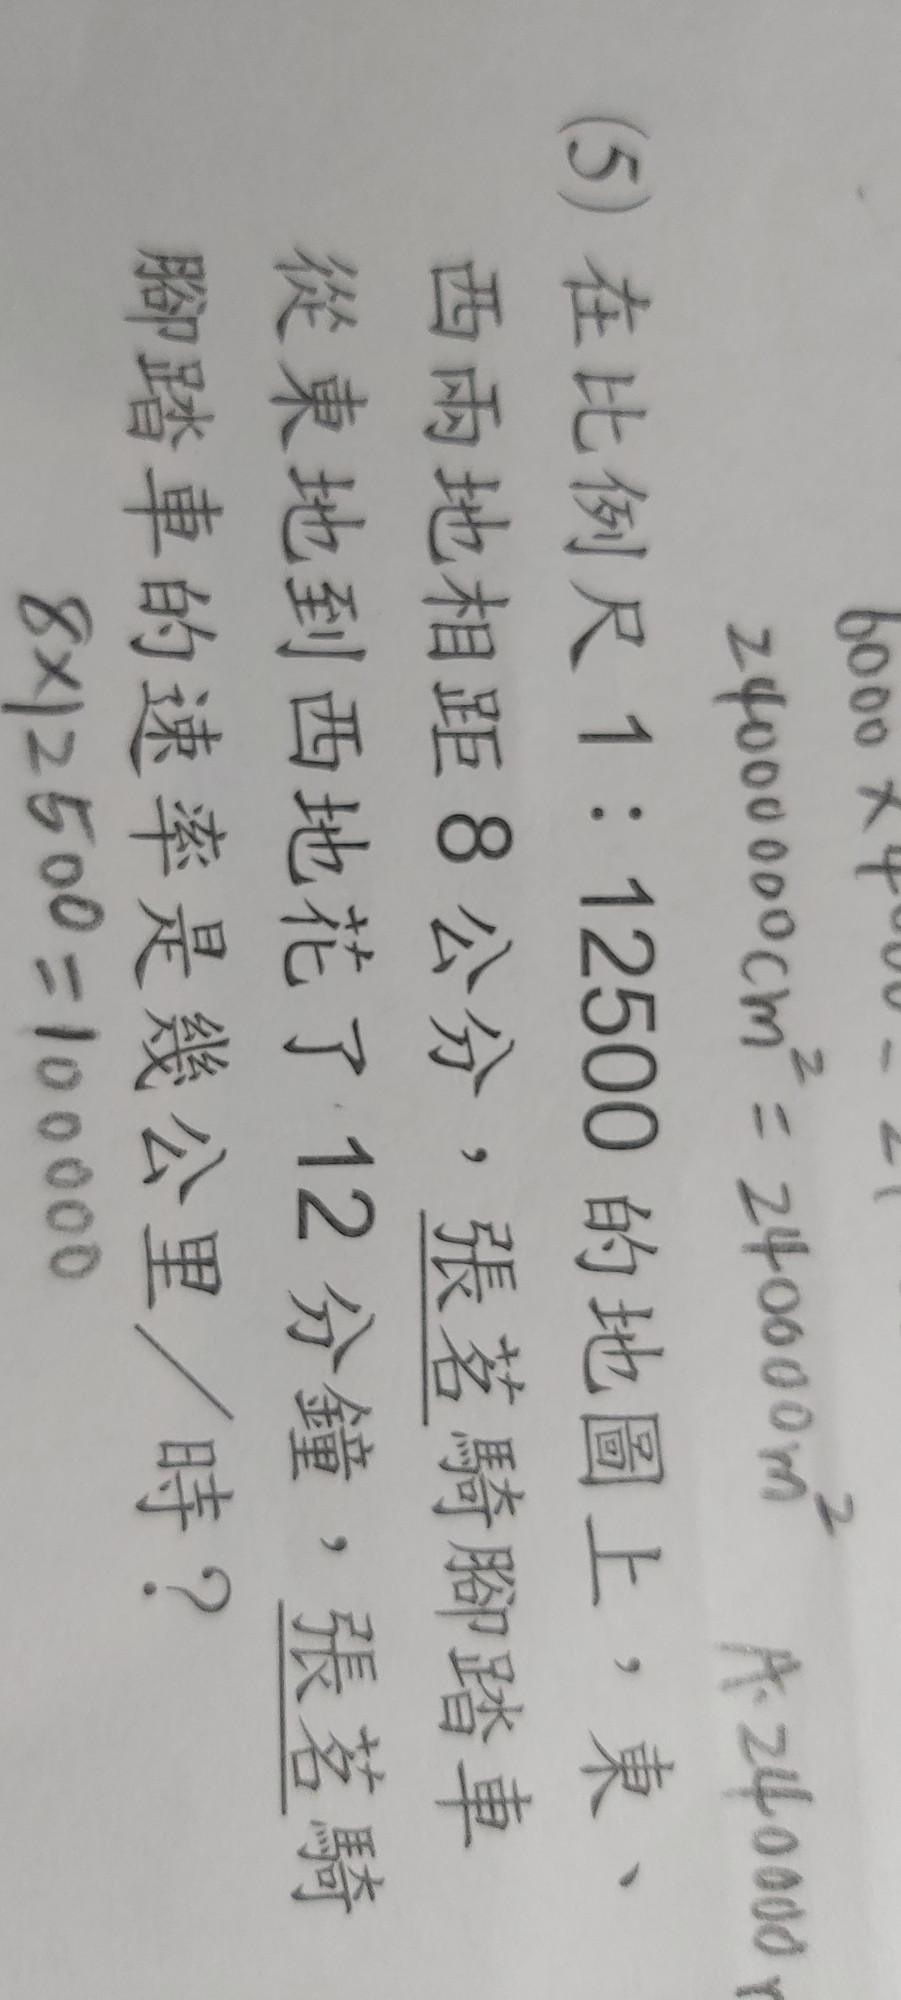 6000×4000=2
24000000cm²=240000m² A.240000
(5) 在比例尺 1：12500 的地圖上，東、
西兩地相距 8 公分，張茗騎腳踏車
從東地到西地花了 12 分鐘，張茗騎
腳踏車的速率是幾公里／時？
8×12500=100000